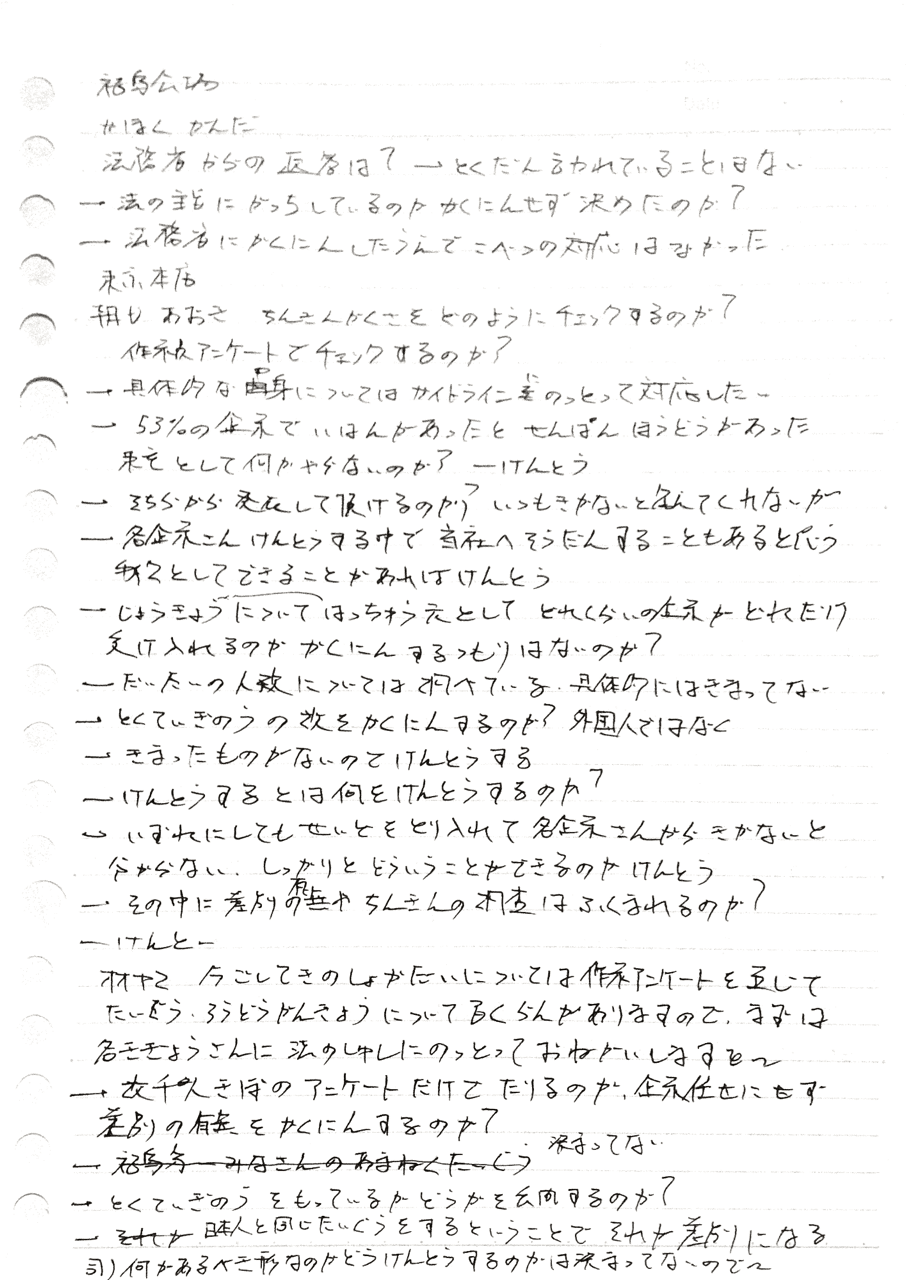 福島会場
かほく かんだ
法務省からの 回答は? → とくだん言われていることはない
→ 法の主旨に がっちしているのか かくにんせず 決めたのか?
→ 法務省にかくにんしたうえで こべつの対応はなかった
東京本店
朝日 あおき ちんぎんかくさを どのようにチェックするのか?
作業員アンケートで チェックするのか?
→ 具体的な 中身についてはガイドラインに のっとって対応したい
→ 53%の企業で いはんがあったと せんぱん ほうどうがあった
東電として何かやらないのか? ーけんとう
→ そちらから 発表して頂けるのか? いつもきかないと 言ってくれないが
→ 各企業さん けんとうする中で 当社へ そうだんすることもあると思う
としてできることがあれば けんとう
→ じょうきょうについて はっちゅう元として どれくらいの企業が どれだけ
受け入れるのか かくにん するつもりはないのか?
→ だいたいの人数については 調べている。具体的にはきまってない
→ とくていぎのう の数をかくにんするのか? 外国人ではなく
→ きまったものがないので けんとうする
→ けんとうする とは何をけんとうするのか?
→ いずれにしても せいどをとり入れて 各企業さんから きかないと
分からない。しっかりと どういうことができるのか けんとう
→ その中に差別の有無や ちんぎんの 調査は ふくまれるのか?
→ けんとー
オオヤマ 今ごしてきのしょかだいについては 作業アンケートを 通じて
たいぐう・ろうどうかんきょう についてもくらんがありますので、まずは
各きぎょうさんに 法のしゅしにのっとって おねがいしますと〜
→ 数千人きぼの アンケートだけで たりるのか、企業任せにせず
差別の有無を かくにんするのか?
→ 福島第一みなさんのあまねくたいぐう 決まってない
→ とくていぎのう をもっているか どうかを 質問するのか?
→ それが 日本人と同じたいぐうをするということで それが 差別になる
司) 何があるべき形なのか どうけんとうするのかは 決まってないので〜